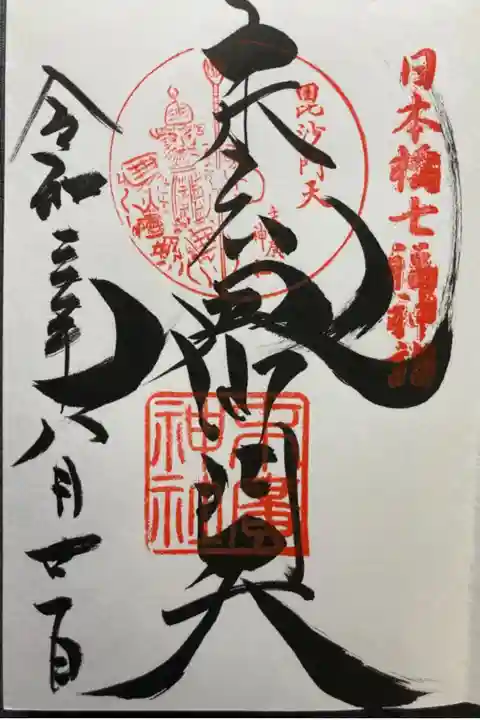 日本橋七福神詣
毘沙門天
奉拝
毘沙門天
神社
令和三年八月廿一日